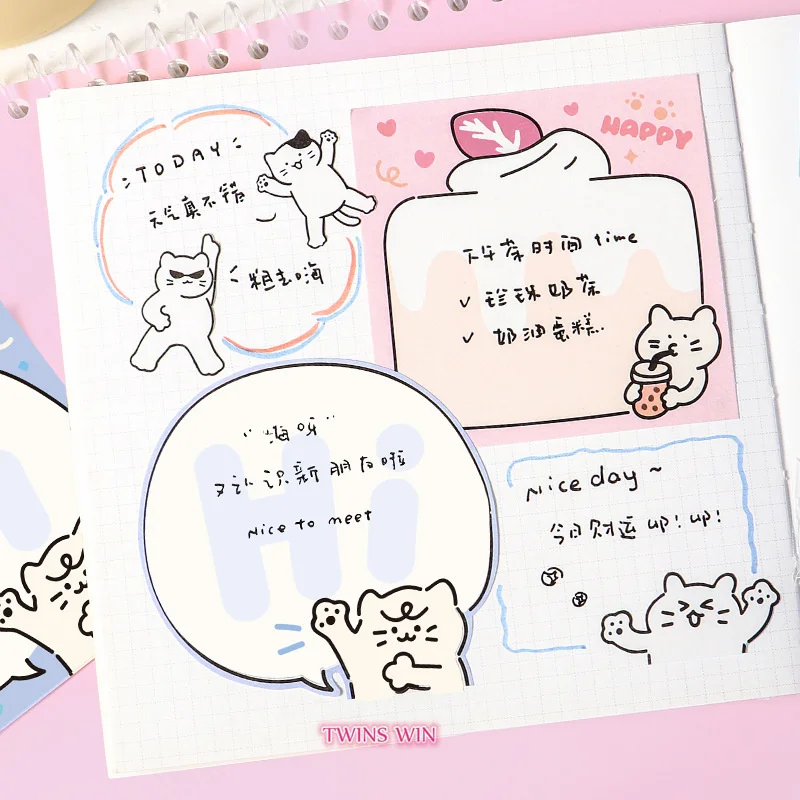 TODAY
天气真不错
粗去嗨
HAPPY
下午茶时间 time
✓ 珍珠奶茶
✓ 奶油蛋糕..
Hi
"嗨呀"
又认识新朋友啦
Nice to meet
Nice day ~
今日财运 up! up!
TWINS WIN